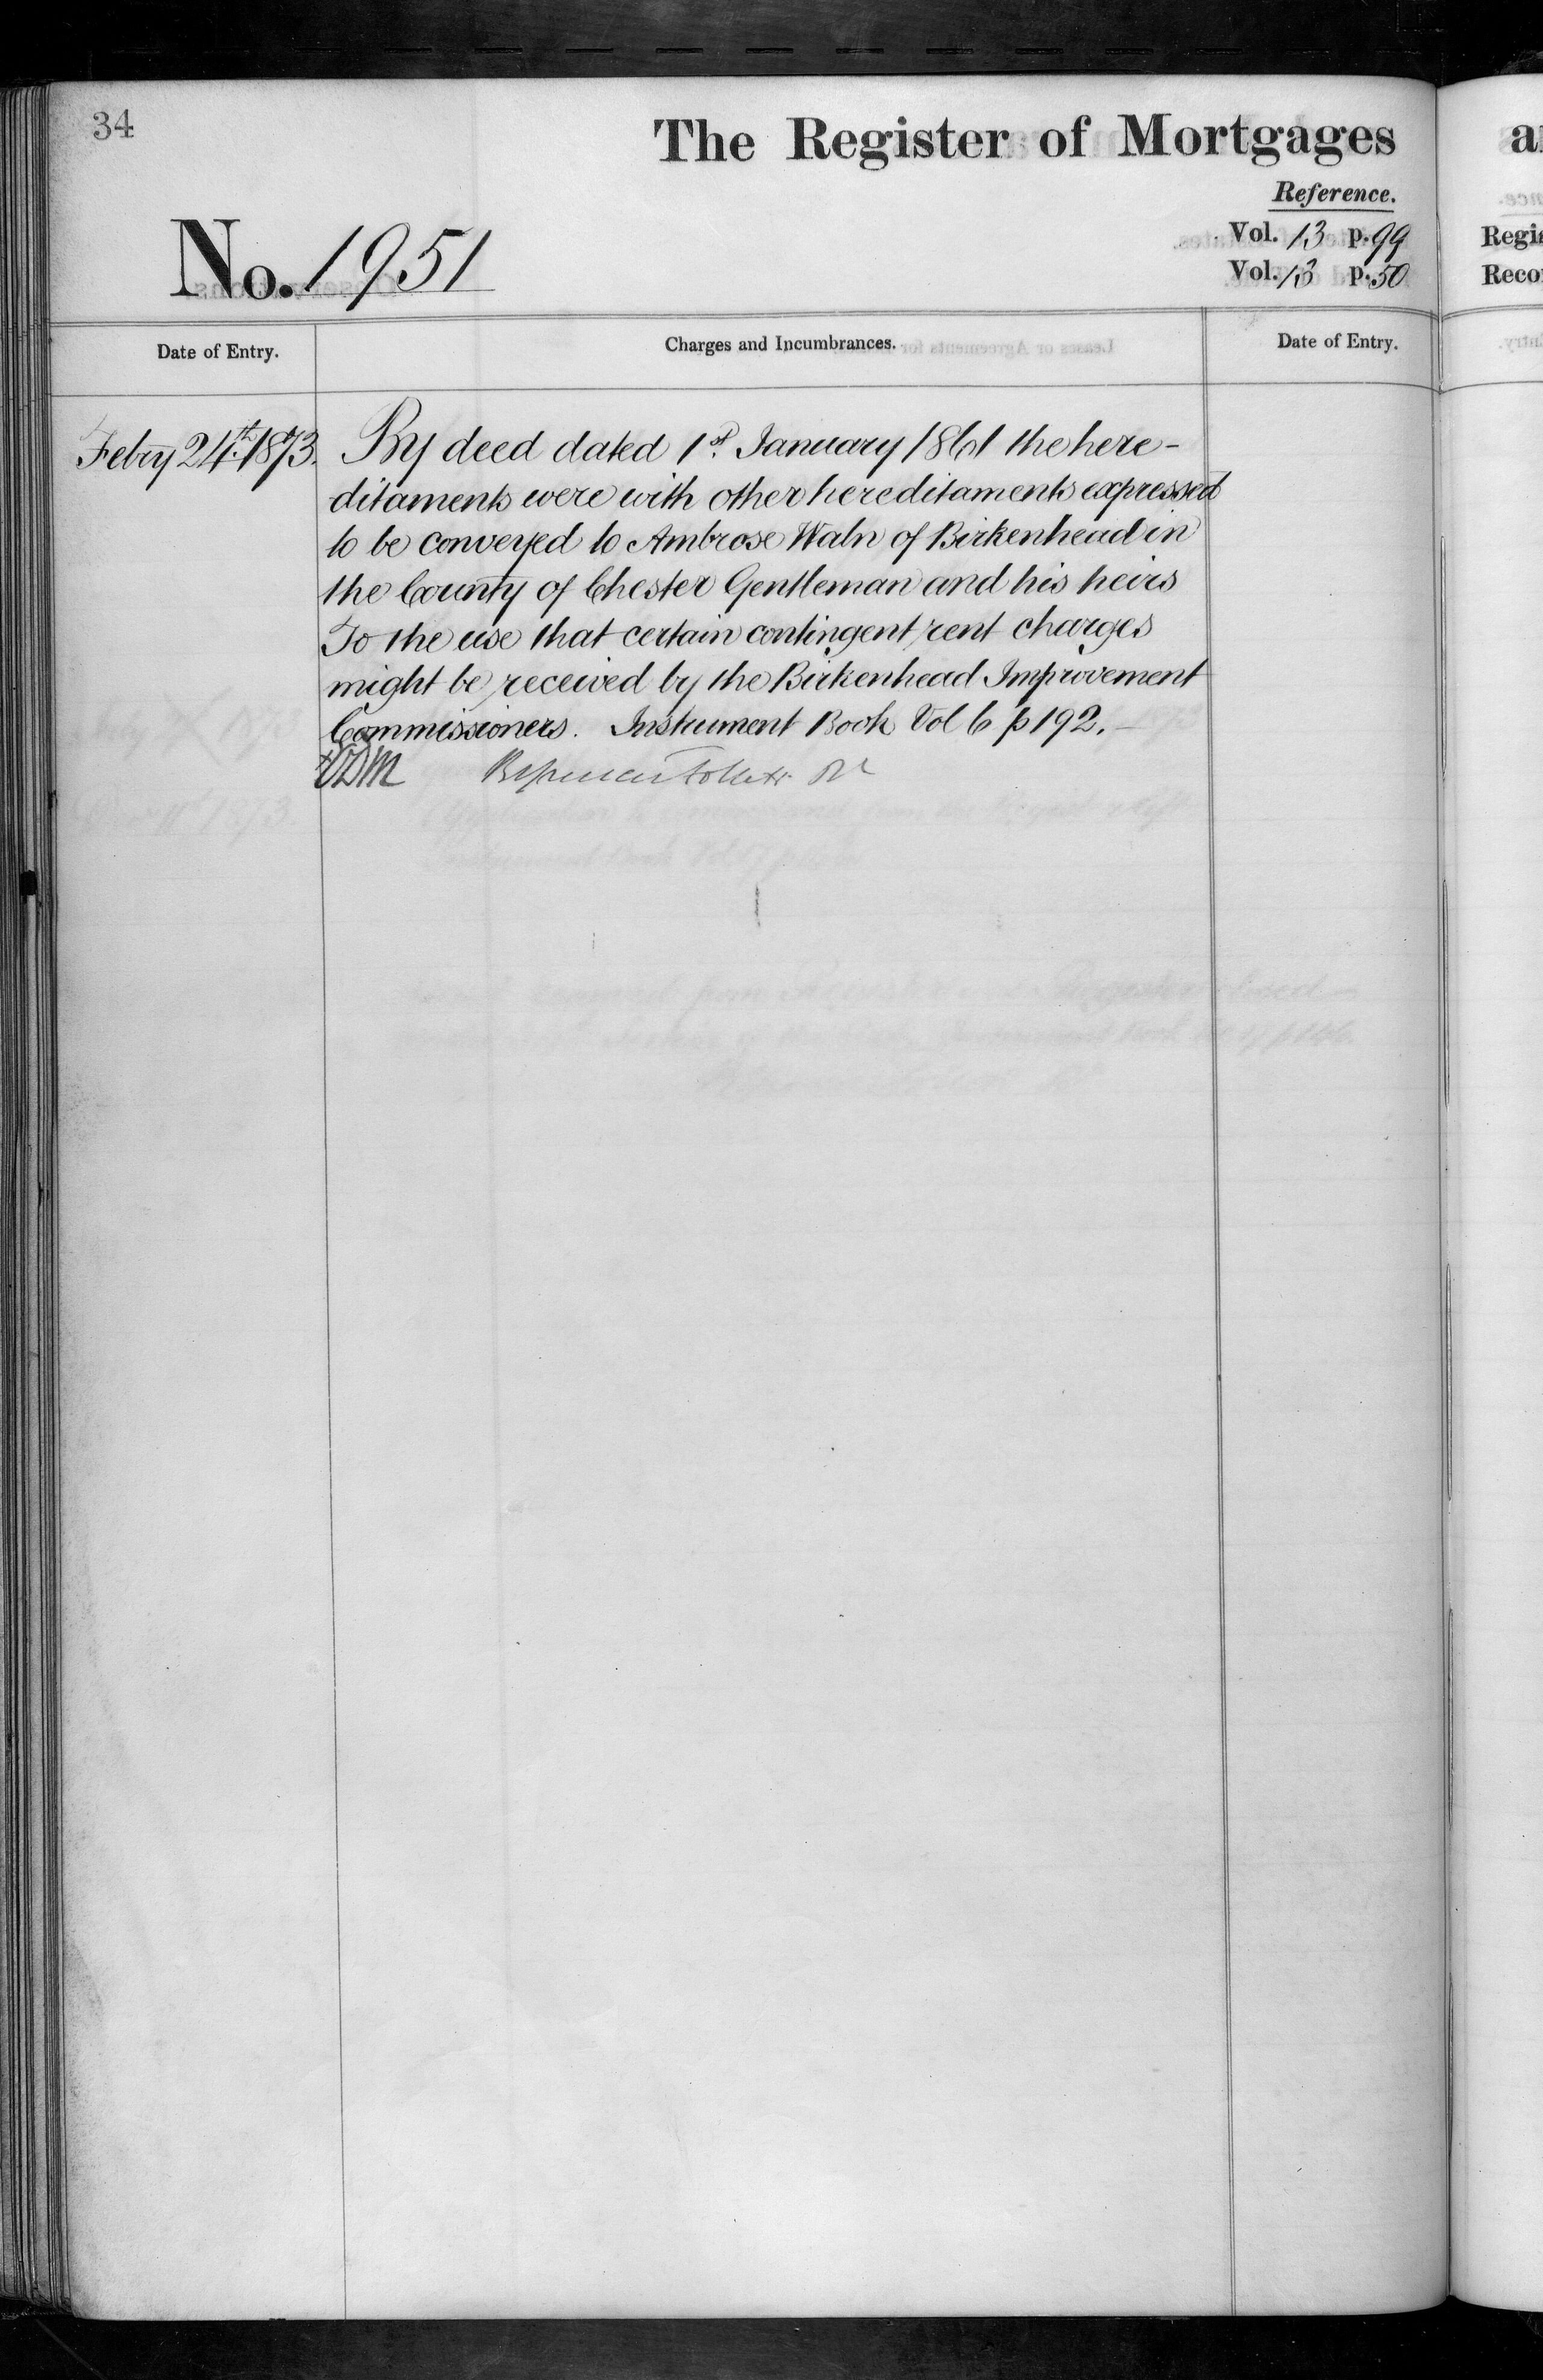 34
The Register of Mortgages
Reference.
No. 1951
Vol. 13 p. 99
Vol. 13 p. 50
Date of Entry.
Charges and Incumbrances.
Date of Entry.
Febry 24th 1873.
By deed dated 1st January 1861 the here-
ditaments were with other hereditaments expressed
to be conveyed to Ambrose Waln of Birkenhead in
the County of Chester Gentleman and his heirs
To the use that certain contingent rent charges
might be received by the Birkenhead Improvement
Commissioners. Instrument Book Vol 6 p 192.
Follett